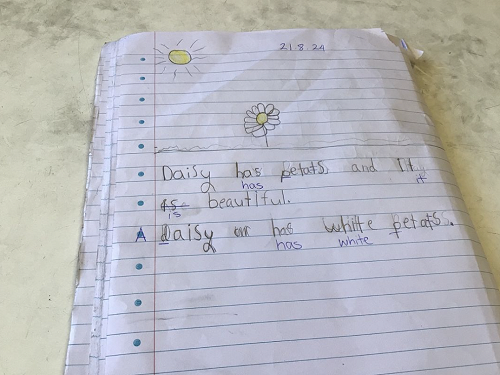 21.8.24
Daisy has petats and It
has it
is beautiful.
is
A daisy has white petats.
has white